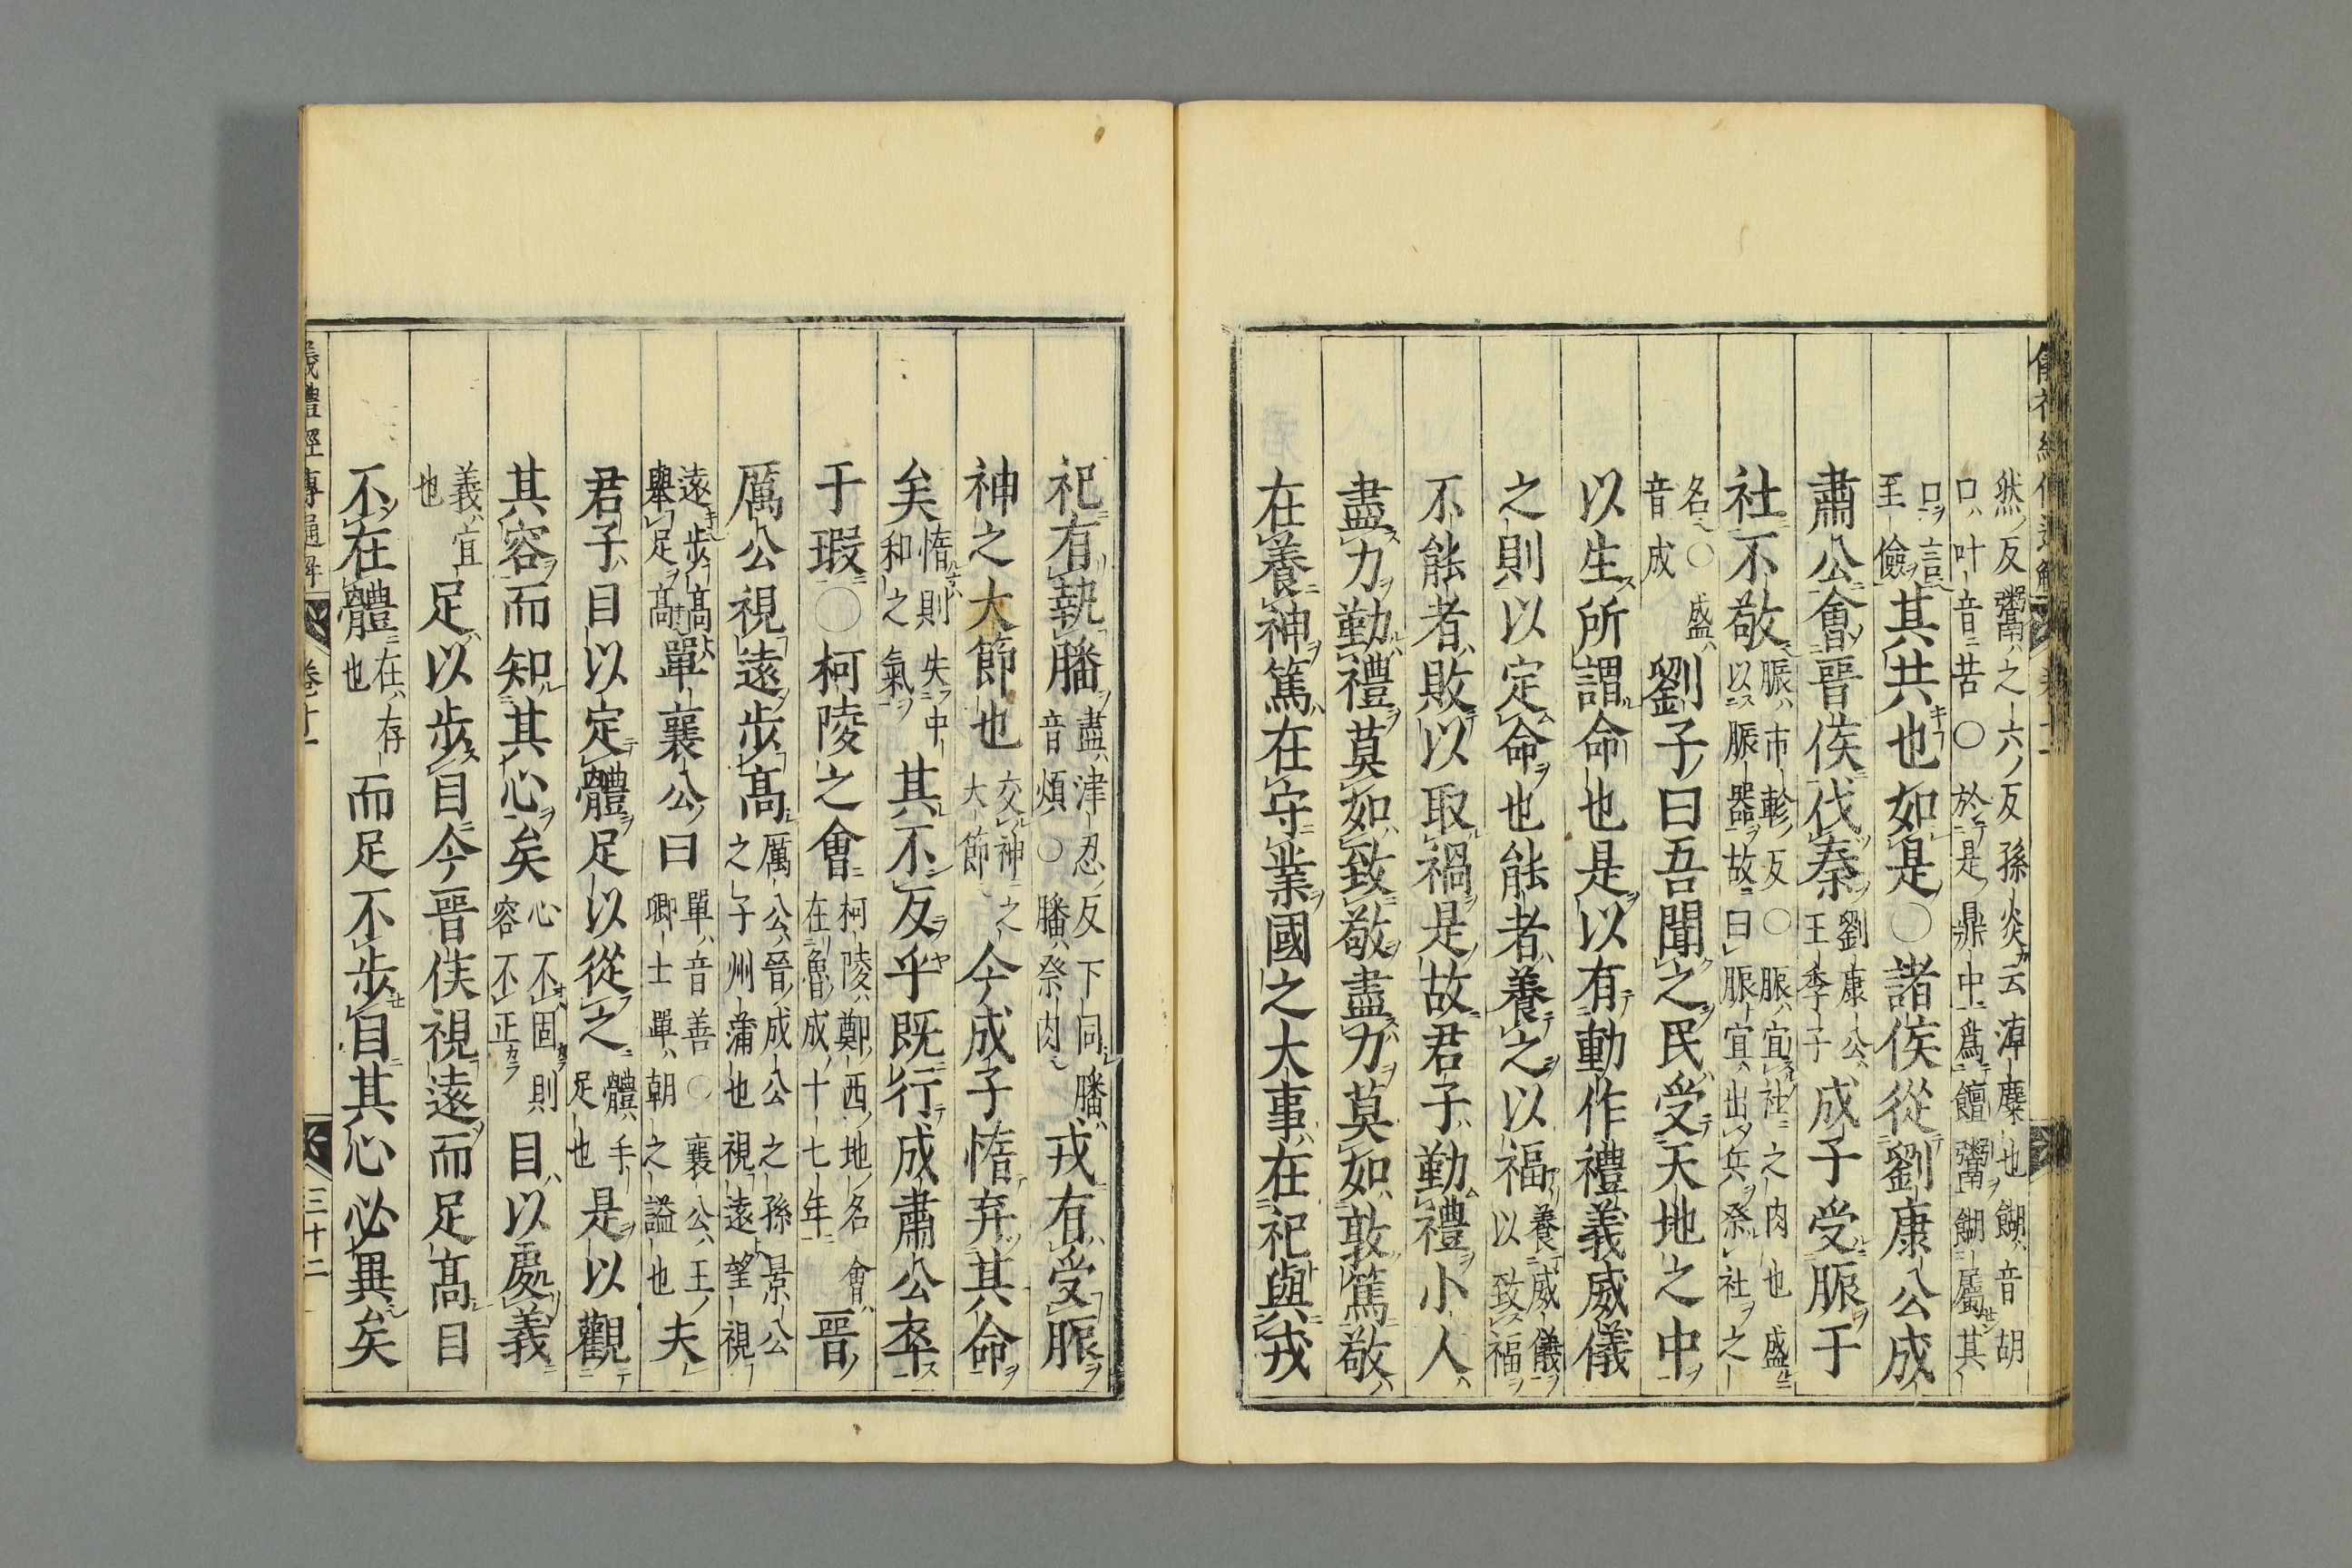 儀禮經傳通解 卷十一
然反鬻之六反孫炎云淖麋也餬音胡
口叶音苦〇於是鼎中爲饘鬻餬屬其
口言至儉其共也如是〇諸侯從劉康公成
肅公會晉侯伐秦劉康公王季子成子受脤于
社不敬脤市軫反〇脤宜社之肉也盛以脤器故曰脤宜出兵祭社之
名〇盛音成劉子曰吾聞之民受天地之中
以生所謂命也是以有動作禮義威儀
之則以定命也能者養之以福養威儀以致福
不能者敗以取禍是故君子勤禮小人
盡力勤禮莫如致敬盡力莫如敦篤敬
在養神篤在守業國之大事在祀與戎
祀有執膰盡津忍反下同膰音煩〇膰祭肉戎有受脤
神之大節也交神之大節今成子惰弃其命
矣惰則失中和之氣其不反乎既行成肅公卒
于瑕〇柯陵之會柯陵鄭西地名會在魯成十七年晉
厲公視遠步高厲公晉成公之孫景公之子州蒲也視遠望視
遠步高舉足高單襄公曰單音善〇襄公王卿士單朝之謚也夫
君子目以定體足以從之體手足也是以觀
其容而知其心矣心不固則容不正目以處義
義宜也足以步目今晉侯視遠而足高目
不在體在存也而足不步目其心必異矣
儀禮經傳通解 卷十一 三十二